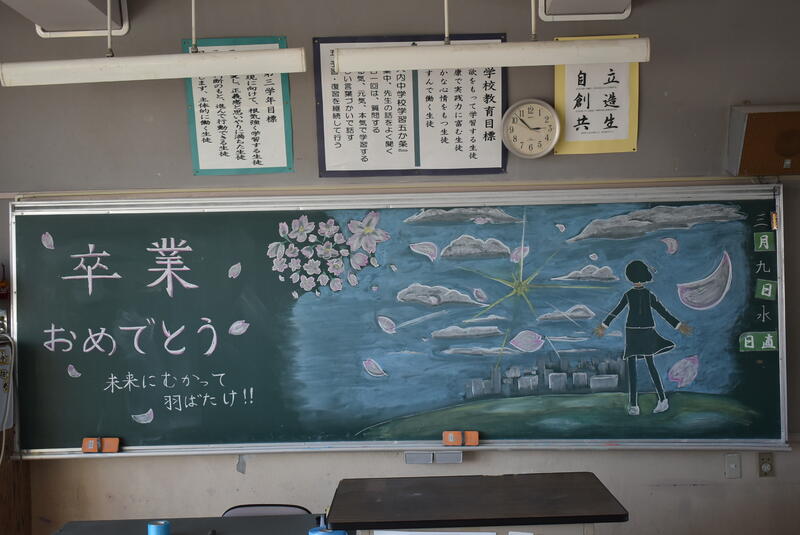 第三学年目標
現に向けて、根気強く学習する生徒
愛し、正義感と思いやりに満ちた生徒
判断のもと、進んで行動できる生徒
主体的に働く生徒
学校教育目標
欲をもって学習する生徒
康で実践力に富む生徒
かな心情をもつ生徒
すんで働く生徒
内中学校学習五か条』
業中、先生の話をよく聞く
日一回は、質問する
る気、元気、本気で学習する
しい言葉づかいで話す
予習・復習を継続して行う
自立
創造
共生
卒業
おめでとう
未来にむかって
羽ばたけ!!
三月九日水
日直